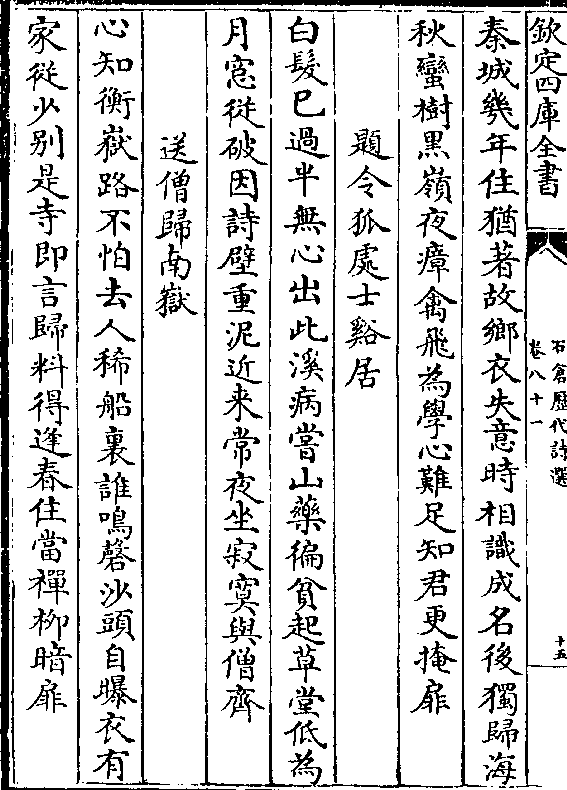 欽定四庫全書
石倉歷代詩選
卷八十一
十五
秦城幾年住猶著故鄉衣失意時相識成名後獨歸海
秋蠻樹黑嶺夜瘴禽飛為學心難足知君更掩扉
題令狐處士谿居
白髮已過半無心出此溪病嘗山藥徧貧起草堂低為
月窻從破因詩壁重泥近来常夜坐寂寞與僧齊
送僧歸南嶽
心知衡嶽路不怕去人稀船裏誰鳴磬沙頭自曝衣有
家從少别是寺即言歸料得逢春住當禪柳暗扉